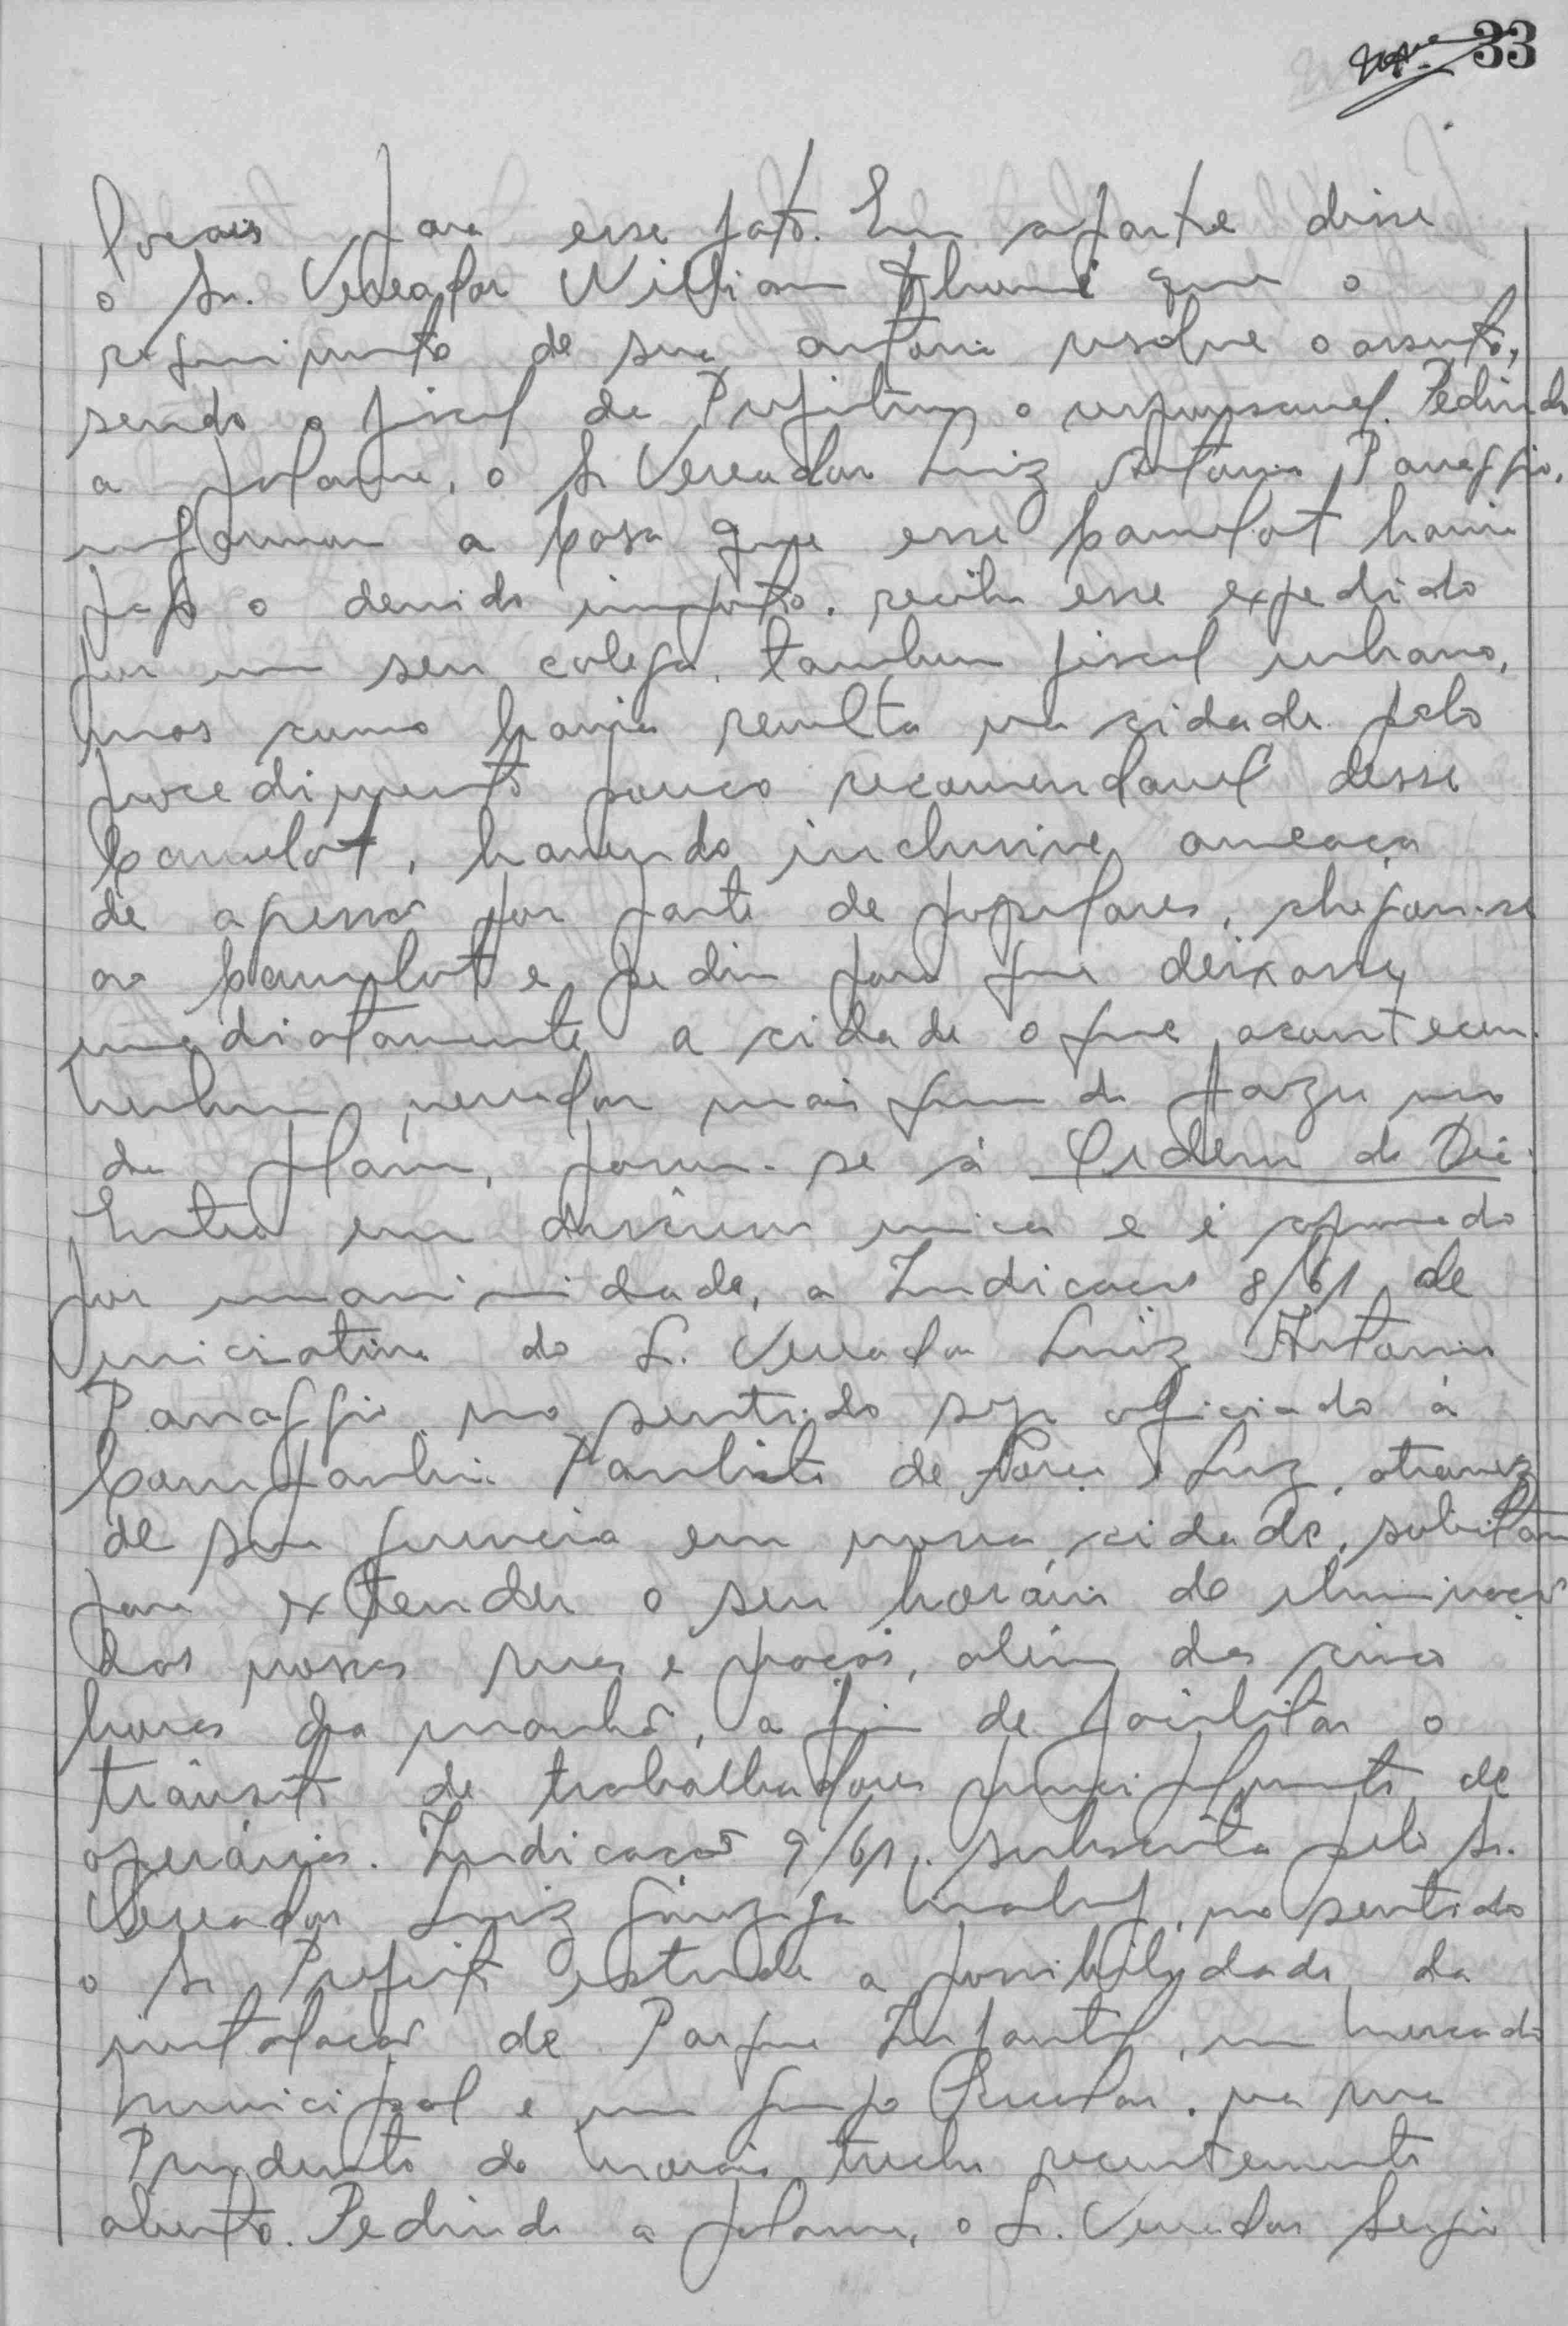 33
locais para esse fato. Em aparte disse
o Sr. Vereador William que o
requerimento de sua autoria resolve o assunto,
sendo o fiscal da Prefeitura o responsavel. Pedindo
a palavra, o Sr Vereador Luiz Antonio Panaggio,
informou a Casa que esse Camelot havia
pago o devido imposto. recibo esse expedido
por um seu colega, tambem fiscal urbano,
mas como havia revolta na cidade pelo
procedimento pouco recomendavel desse
Camelot, havendo inclusive ameaça
de agressão por parte de populares, chegou-se
ao Camelot e pediu para que deixasse
imediatamente a cidade o que aconteceu.
Nenhum vereador mais querendo fazer uso
da palavra, passou-se à Ordem do Dia.
Entra em discussão unica e é aprovado
por unanimidade, a Indicacao 8/61 de
iniciativa do Sr. Vereador Luiz Antonio
Panaggio no sentido seja oficiado à
Companhia Paulista de Força e Luz, atravez
de sua gerencia em nossa cidade, solicitam
para extender o seu horário de iluminação
das nossas ruas e praças, além das cinco
horas da manhã, a fim de facilitar o
trânsito de trabalhadores principalmente de
operários. Indicacao 9/61, subscrita pelo Sr.
Vereador Luiz Gonzaga Maluf, no sentido
o Sr Prefeito estude a possibilidade da
instalacao de Parque Infantil, um mercado
Municipal e um Grupo Escolar, na rua
Prudente de Morais trecho recentemente
aberto. Pedindo a palavra, o Sr. Vereador Sergio